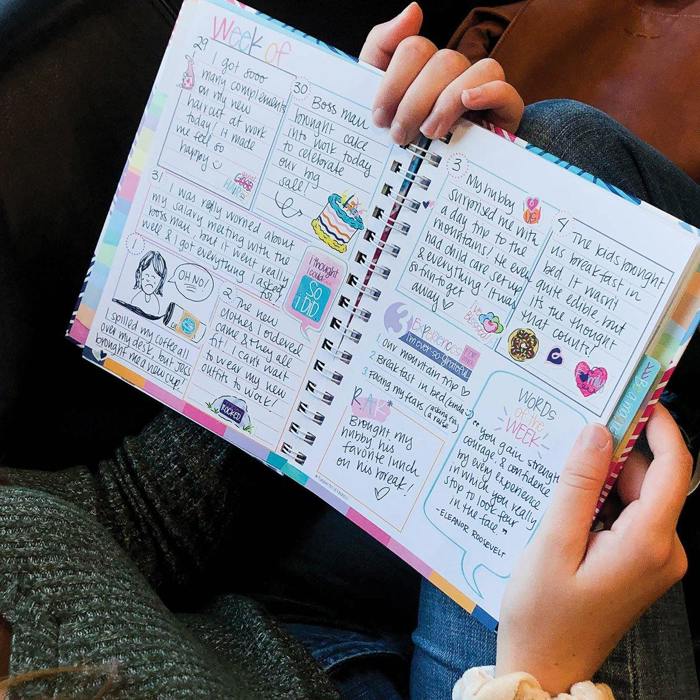 Week of
29
I got sooo
many compliments
on my new
haircut at work
today. It made
me feel so
happy
30
Boss man
brought cake
into work today
to celebrate
our big
sale!
31
I was really worried about
my salary meeting with the
boss man, but it went really
well & I got everything I asked
for!
I thought
I could...
SO
I DID.
1
OH NO!
I spilled my coffee all
over my desk, but Joes
brought me a new cup!
2. The new
clothes I ordered
came & they all
fit! I can't wait
to wear my new
outfits to work!
3
My hubby
surprised me with
a day trip to the
mountains! He even
had child care set up
& everything! It was
so fun to get
away
4
The kids brought
us breakfast in
bed. It wasn't
quite edible, but
it's the thought
that counts!
3
EXPERIENCES
I'm ever-so-grateful
1 our mountain trip
2 Breakfast in bed (kinda)
3 Facing my fears (asking for
a raise)
RAK
Brought my
hubby his
favorite lunch
on his break!
WORDS
of the
WEEK
"You gain strength
courage & confidence
by every experience
in which you really
stop to look fear
in the face."
-ELEANOR ROOSEVELT